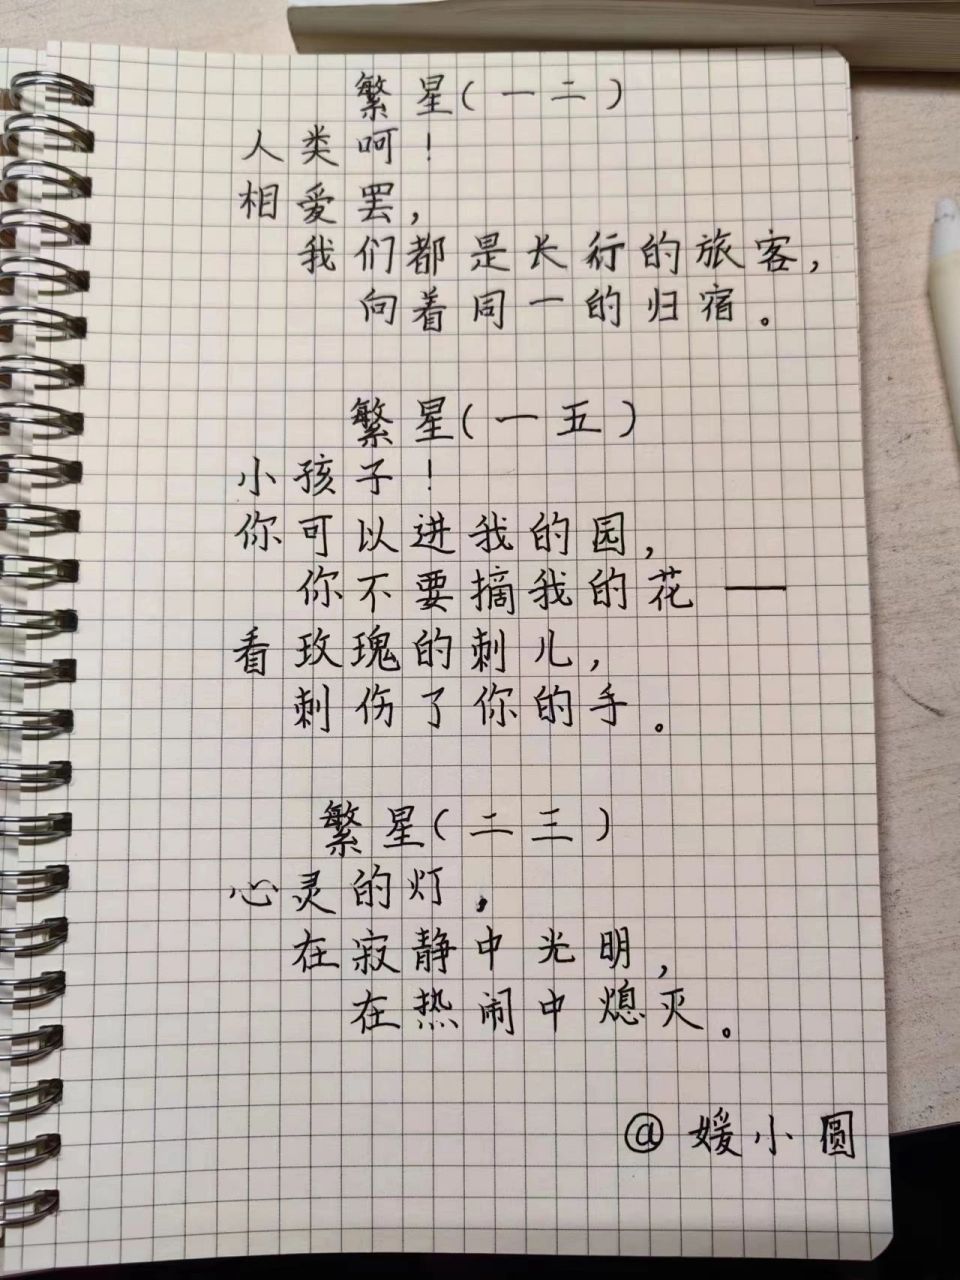 繁星(一二)
人类呵!
相爱罢,
我们都是长行的旅客,
向着同一的归宿。
繁星(一五)
小孩子!
你可以进我的园,
你不要摘我的花——
看玫瑰的刺儿,
刺伤了你的手。
繁星(二三)
心灵的灯,
在寂静中光明,
在热闹中熄灭。
@媛小圆